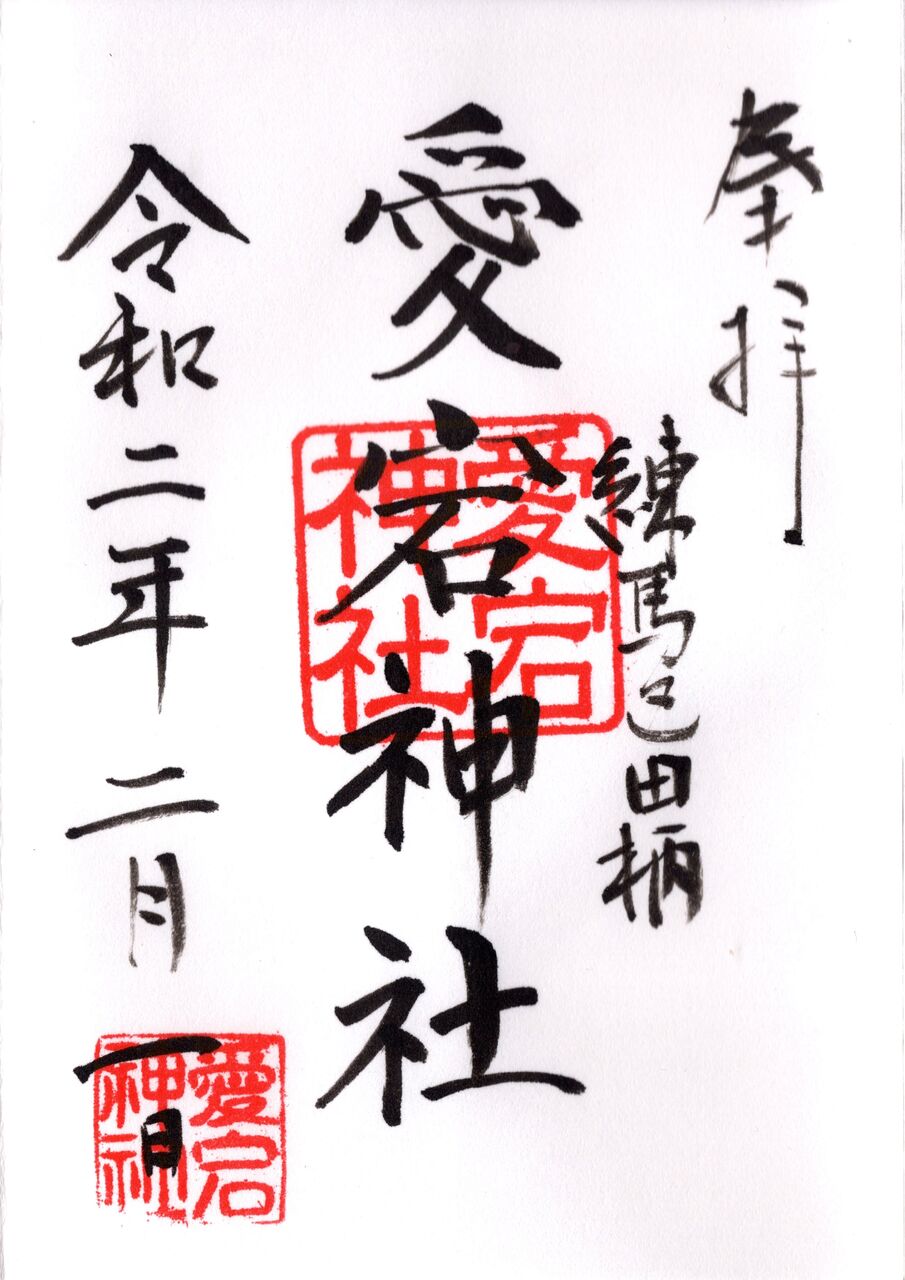 奉拝
練馬区田柄
愛宕神社
愛宕
神社
令和二年二月一日
愛宕
神社